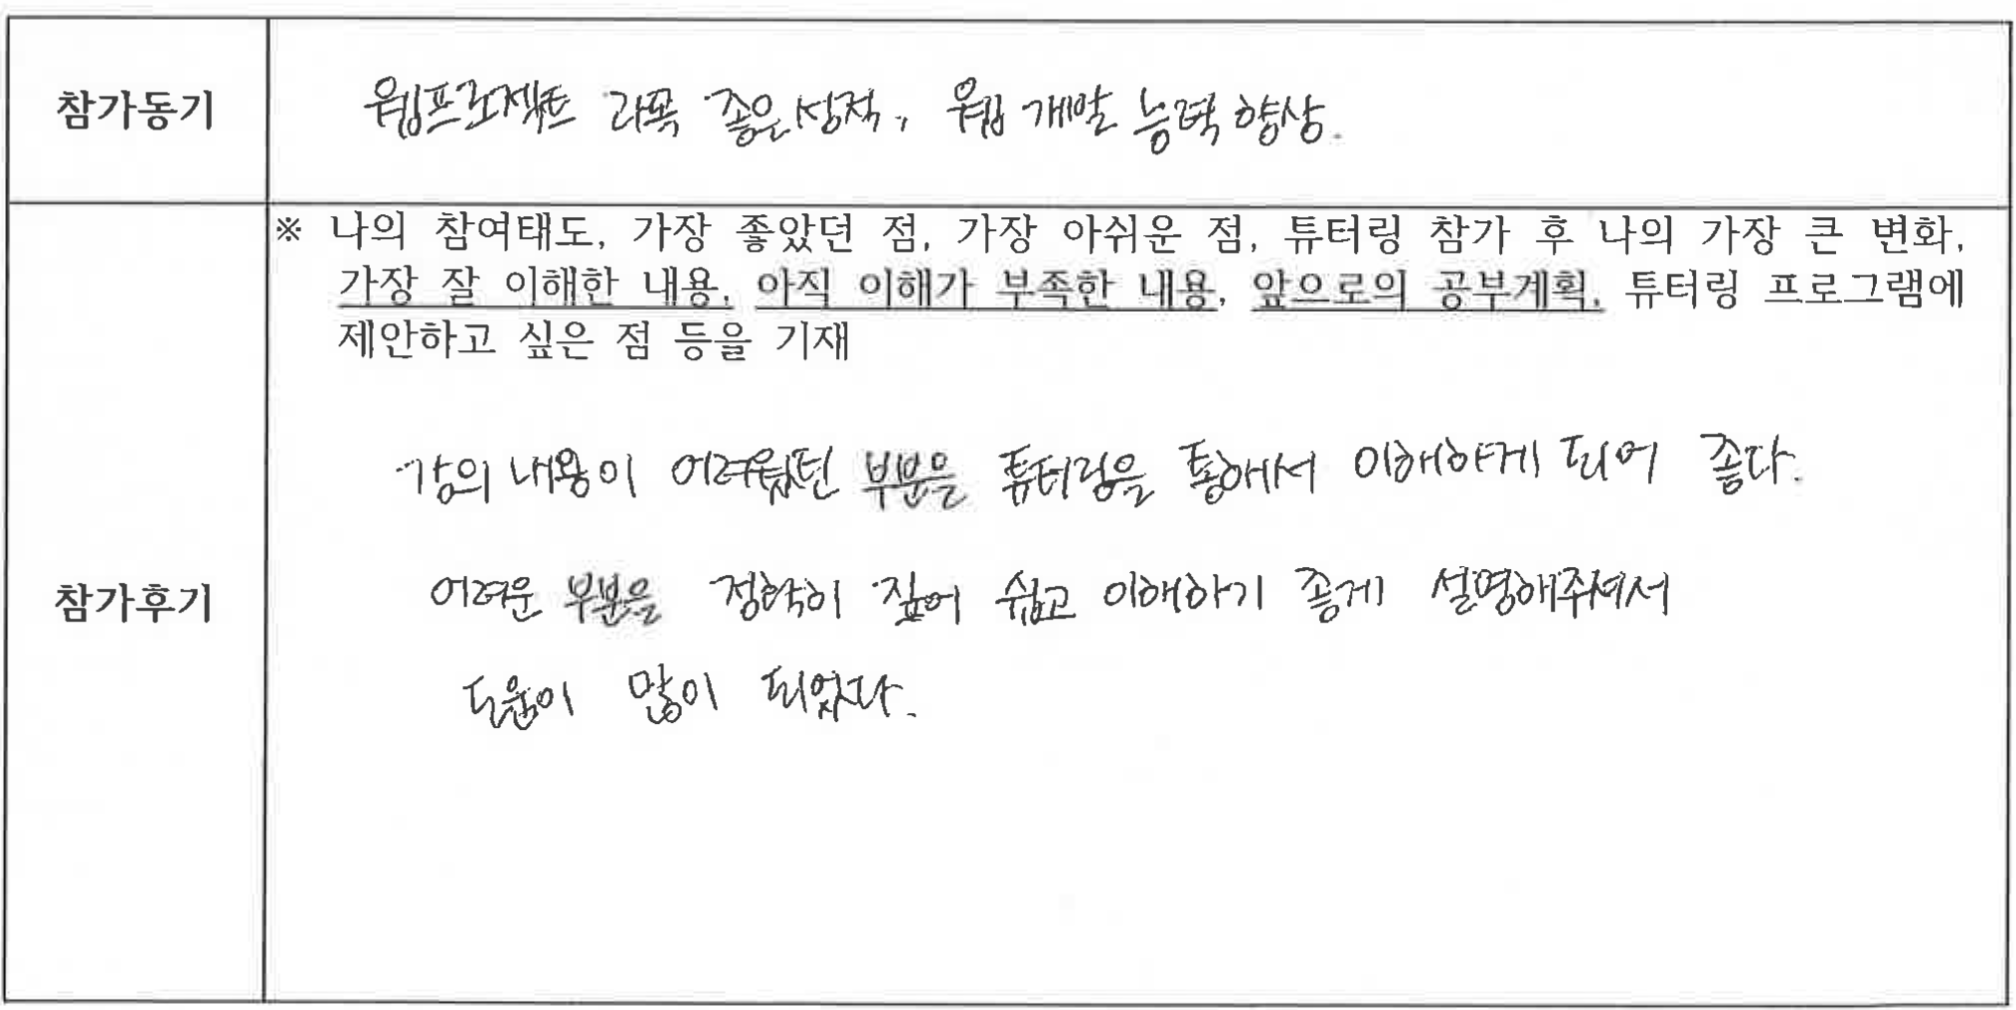 참가동기
웹프로젝트 과목 좋은성적, 웹 개발 능력 향상.
※ 나의 참여태도, 가장 좋았던 점, 가장 아쉬운 점, 튜터링 참가 후 나의 가장 큰 변화,
가장 잘 이해한 내용, 아직 이해가 부족한 내용, 앞으로의 공부계획, 튜터링 프로그램에
제안하고 싶은 점 등을 기재
강의 내용이 어려웠던 부분을 튜터링을 통해서 이해하게 되어 좋다.
참가후기
어려운 부분을 정확히 짚어 쉽고 이해하기 좋게 설명해주셔서
도움이 많이 되었다.